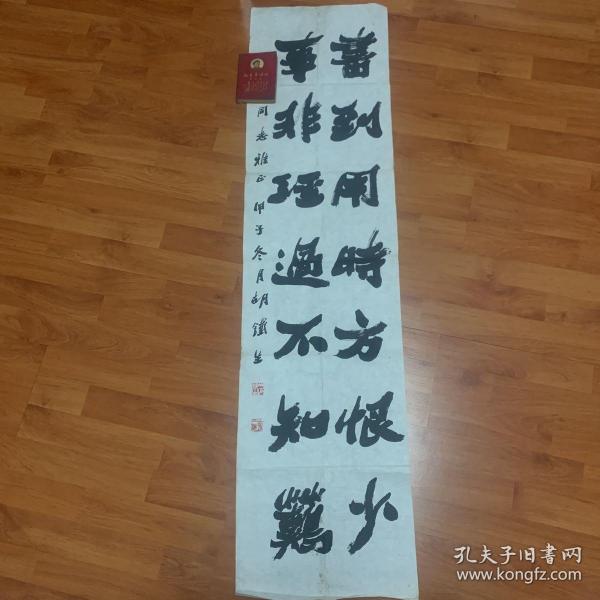 書到用時方恨少
事非經過不知難
同志雅正 甲子冬月 胡鐵生
孔夫子旧书网
www.kongfz.com